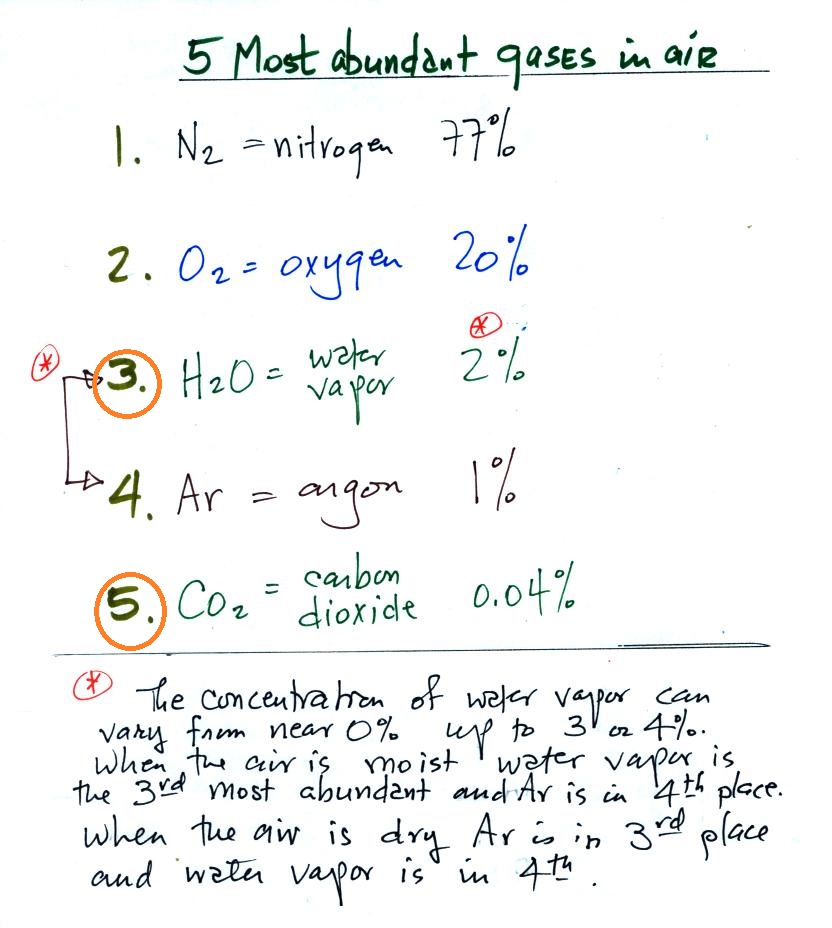 5 Most abundant gases in air
1. N2 = nitrogen 77%
2. O2 = oxygen 20%
*
* 3. H2O = water vapor 2%
4. Ar = argon 1%
5. CO2 = carbon dioxide 0.04%
* The concentration of water vapor can
vary from near 0% up to 3 or 4%.
When the air is moist water vapor is
the 3rd most abundant and Ar is in 4th place.
When the air is dry Ar is in 3rd place
and water vapor is in 4th.